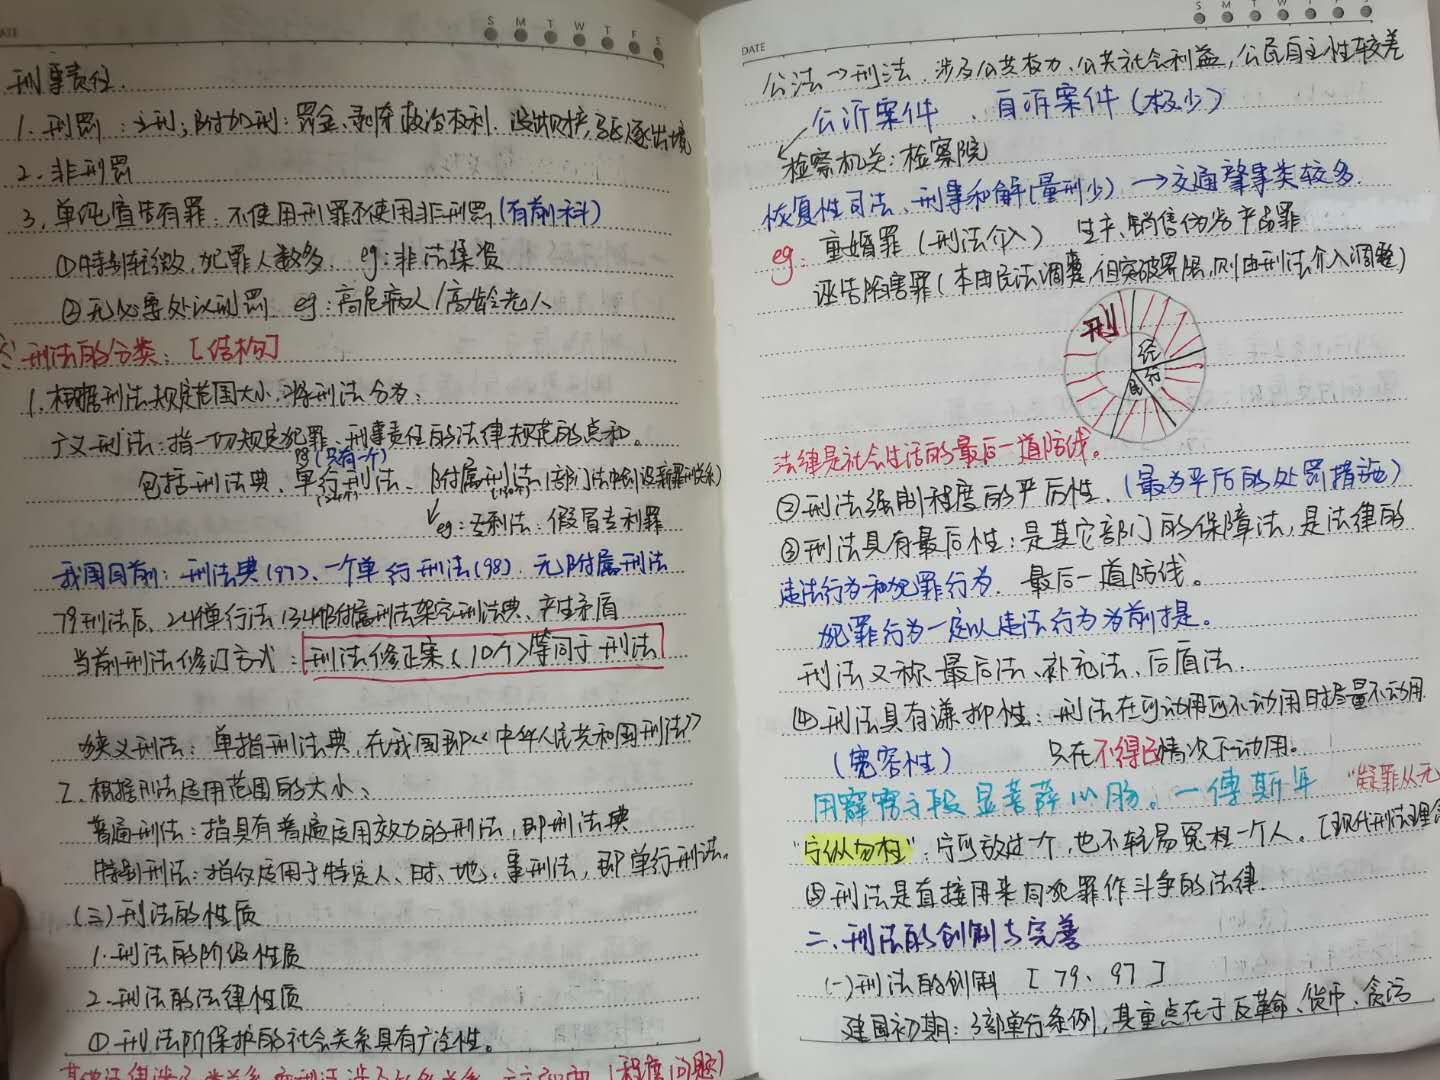 DATE
S M T W T F S
刑事责任.
1. 刑罚：主刑；附加刑：罚金、剥夺政治权利、没收财产、驱逐出境
2. 非刑罚
3. 单纯宣告有罪：不使用刑罪不使用非刑罚(有前科)
①特别轻微，犯罪人数多. eg：非法集资
②无必要处以刑罚 eg：高危病人/高龄老人
刑法的分类：[结构]
1.根据刑法规定范围大小，将刑法分为：
广义刑法：指一切规定犯罪、刑事责任的法律规范的总和。
(只有一个)
包括刑法典、单行刑法、附属刑法(部门法中创设新罪刑关系)
eg：专利法：假冒专利罪
我国目前：刑法典(97)、一个单行刑法(98). 无附属刑法
79刑法后、24单行法 134附属刑法架空刑法典、产生矛盾
当前刑法修订方式：刑法修正案(10个)等同于刑法
狭义刑法：单指刑法典，在我国即《中华人民共和国刑法》
2.根据刑法适用范围的大小：
普通刑法：指具有普遍适用效力的刑法，即刑法典
特别刑法：指仅适用于特定人、时、地、事刑法，即单行刑法。
(三)刑法的性质
1.刑法的阶级性质
2.刑法的法律性质
①刑法所保护的社会关系具有广泛性。
(程度问题)
DATE
S M T W T F S
公法→刑法 涉及公共权力、公共社会利益，公民自主性较差
公诉案件 、自诉案件(极少)
检察机关：检察院
恢复性司法、刑事和解(量刑少)→交通肇事类较多.
eg：重婚罪(刑法介入) 生产、销售伪劣产品罪
诬告陷害罪(本由民法调整，但突破界限，则由刑法介入调整)
刑
经
民 行
法律是社会生活的最后一道防线。
②刑法强制程度的严厉性.(最为严厉的处罚措施)
③刑法具有最后性：是其它部门的保障法，是法律的
违法行为和犯罪行为. 最后一道防线。
犯罪行为一定以违法行为为前提。
刑法又称 最后法、补充法、后盾法.
④刑法具有谦抑性：刑法在可动用可不动用时尽量不动用.
(宽容性) 只在不得已情况下动用。
用霹雳手段 显菩萨心肠。—傅斯年 "疑罪从无
"宁纵勿枉"：宁可放过一个，也不轻易冤枉一个人。[现代刑法理念
⑤刑法是直接用来同犯罪作斗争的法律.
二、刑法的创制与完善
(一)刑法的创制 [79、97]
建国初期：3部单行条例，其重点在于反革命、货币、贪污